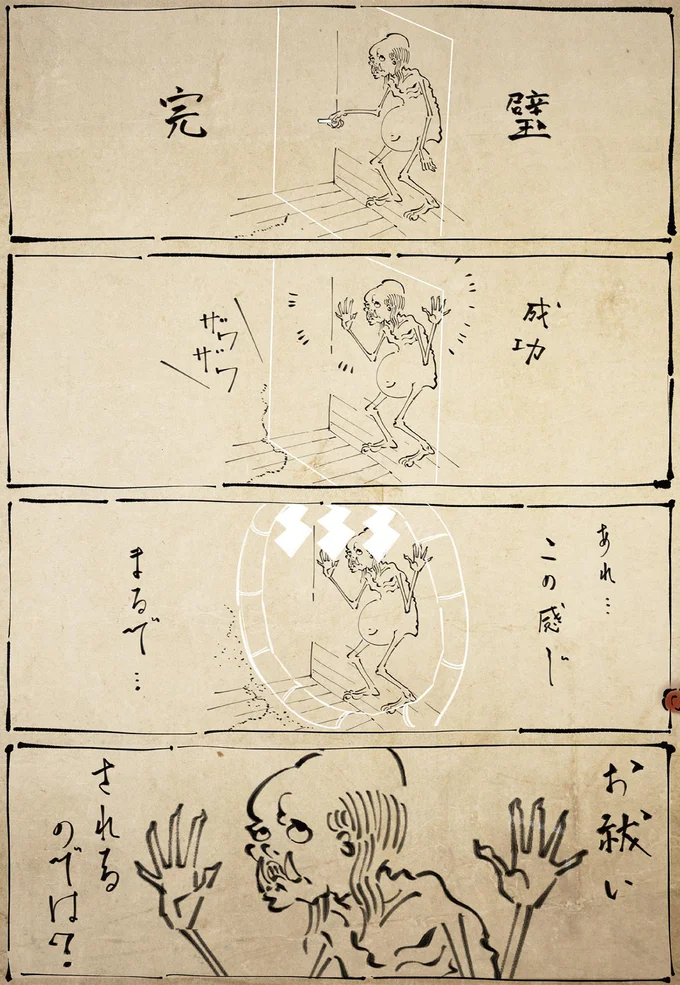 完
璧
成功
ザワ
ザワ
あれ…
この感じ
まるで…
お祓い
される
のでは?